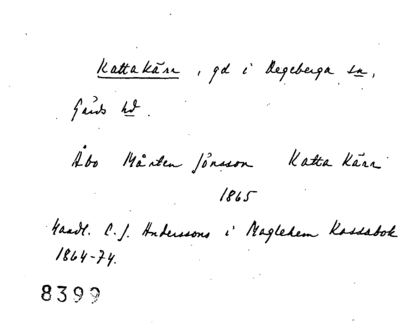 Kattakärr, gd i Degeberga sn,
Gärds hd.
Åbo Mårten Jönsson Katta Kärr
1865
Handl. C. J. Anderssons i Maglehem Kassabok
1864-74.
8399